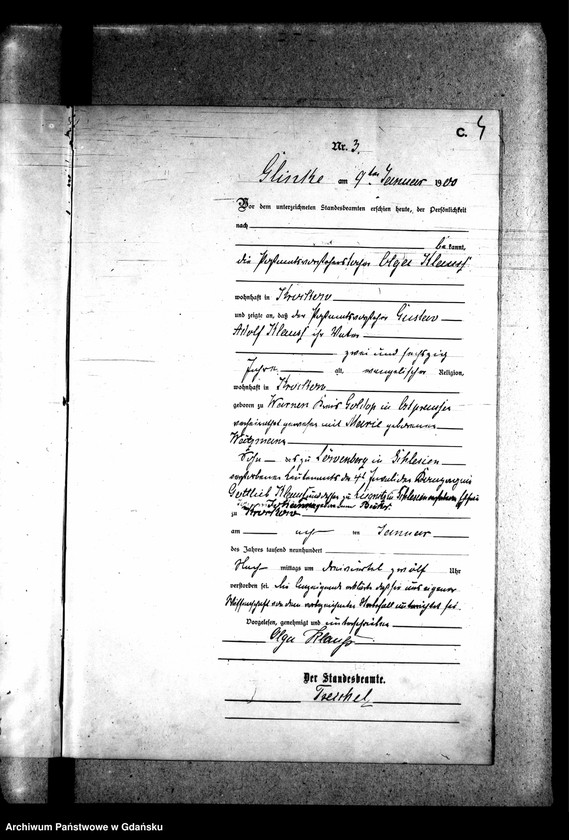 C. 4
Nr. 3.
Glinke am 9ten Januar 1900
Vor dem unterzeichneten Standesbeamten erschien heute, der Persönlichkeit
nach
bekannt,
die Olga Klauss
wohnhaft in Krockow
und zeigte an, daß der Gustav
Adolf Klauss ihr Vater
zwei und sechszig
Jahre alt, evangelischer Religion,
wohnhaft in Krockow
geboren zu Warnen Kreis Goldap in Ostpreußen
verheirathet gewesen mit Marie geborenen
Weitzmann
Sohn des zu Löwenberg in Schlesien
verstorbenen Lieutenants der Invaliden Kompagnie
Gottlieb Klauss und der zu
zu Krockow
am acht ten Januar
des Jahres tausend neunhundert
Nach mittags um dreiviertel zwölf Uhr
verstorben sei. Die Anzeigende erklärte daß sie aus eigener
Wissenschaft von dem unterrichtet sei.
Vorgelesen, genehmigt und unterschrieben
Olga Klauß
Der Standesbeamte.
Archiwum Państwowe w Gdańsku